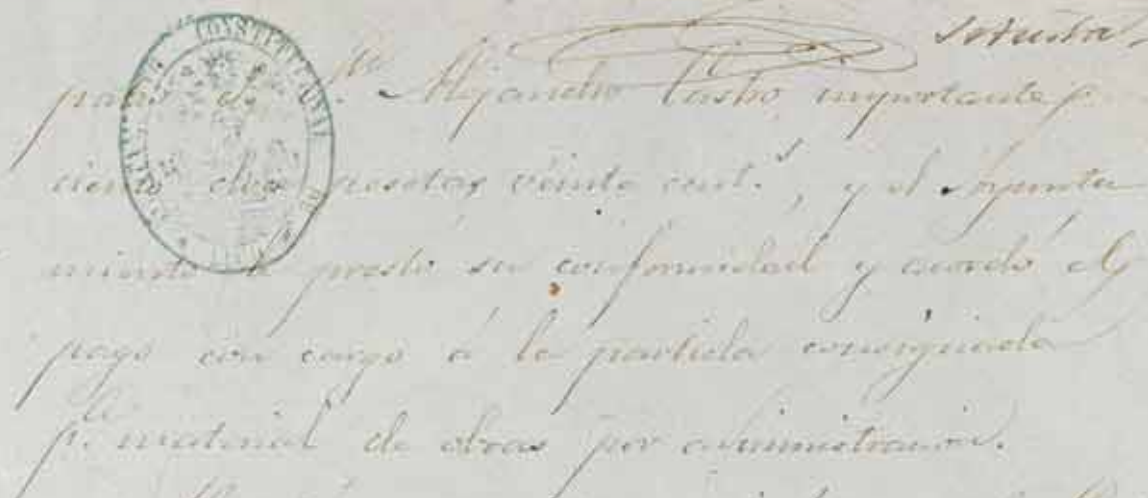 setenta
de Alejandro Castro importante
ciento doce pesetas veinte cent.s, y el Ayunta
miento le prestó su conformidad y acordó el
pago con cargo á la partida consignada
pa. material de obras por administracion.
CONSTITUCIONAL